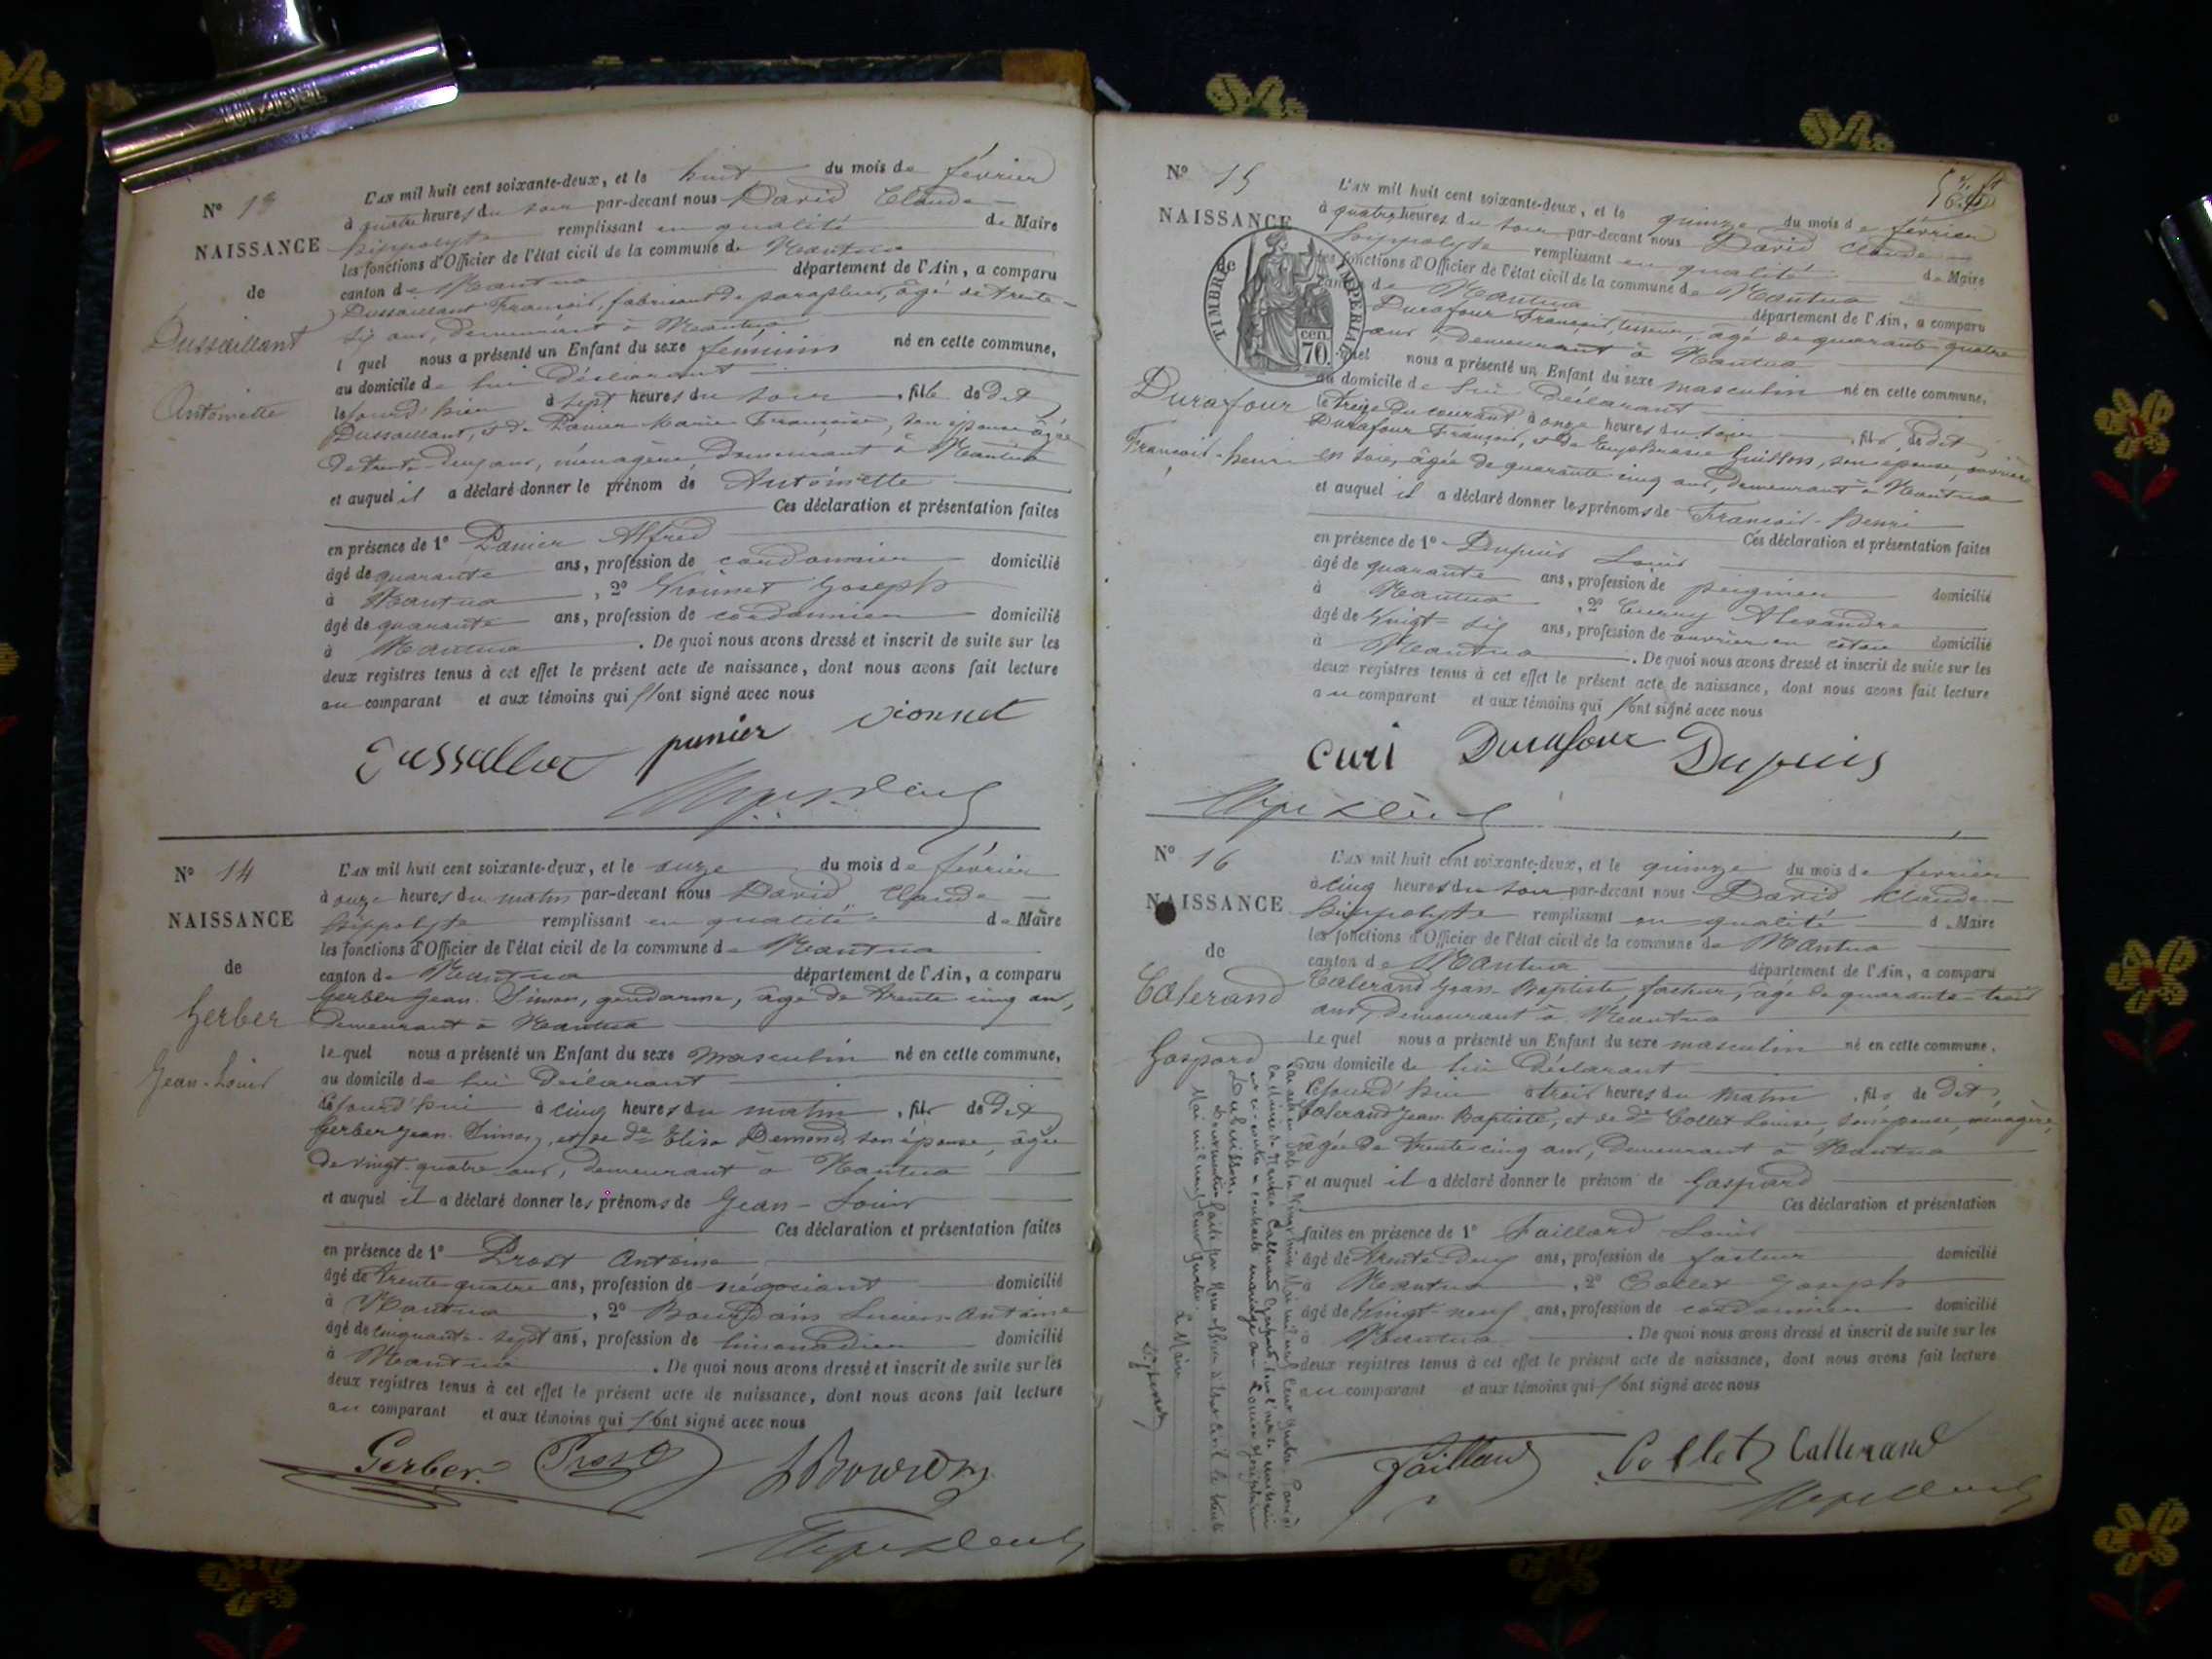 N° 13
NAISSANCE
de
Dussaillant
Antoinette
L'AN mil huit cent soixante-deux, et le huit du mois de février
à quatre heures du soir par-devant nous David Claude
hippolyte remplissant en qualité de Maire
les fonctions d'Officier de l'état civil de la commune de Nantua
canton de Nantua département de l'Ain, a comparu
Dussaillant François, fabricant de parapluies, âgé de trente
six ans, demeurant à Nantua
l quel nous a présenté un Enfant du sexe féminin né en cette commune,
au domicile de lui déclarant
le jourd'hier à sept heures du soir, fille de dit
Dussaillant, et de Panier Marie Françoise, son épouse âgée
de trente-deux ans, ménagère demeurant à Nantua
et auquel il a déclaré donner le prénom de Antoinette
Ces déclaration et présentation faites
en présence de 1° Panier Alfred
âgé de quarante ans, profession de cordonnier domicilié
à Nantua, 2° Joseph
âgé de quarante ans, profession de cordonnier domicilié
à Nantua. De quoi nous avons dressé et inscrit de suite sur les
deux registres tenus à cet effet le présent acte de naissance, dont nous avons fait lecture
au comparant et aux témoins qui ont signé avec nous
panier vionnet
N° 14
NAISSANCE
de
Gerber
Jean-Louis
L'AN mil huit cent soixante-deux, et le onze du mois de février
à onze heures du matin par-devant nous David Claude
hippolyte remplissant en qualité de Maire
les fonctions d'Officier de l'état civil de la commune de Nantua
canton de Nantua département de l'Ain, a comparu
Gerber Jean Simon, gendarme, âgé de trente cinq ans,
demeurant à Nantua
lequel nous a présenté un Enfant du sexe masculin né en cette commune,
au domicile de lui déclarant
cejourd'hui à cinq heures du matin, fils de dit
Gerber Jean Simon, et de de Elisa Demond, son épouse, âgée
de vingt-quatre ans, demeurant à Nantua
et auquel il a déclaré donner les prénoms de Jean-Louis
Ces déclaration et présentation faites
en présence de 1° Prost Antoine
âgé de trente quatre ans, profession de négociant domicilié
à Nantua, 2° Lucien-Antoine
âgé de cinquante-sept ans, profession de limonadier domicilié
à Nantua. De quoi nous avons dressé et inscrit de suite sur les
deux registres tenus à cet effet le présent acte de naissance, dont nous avons fait lecture
au comparant et aux témoins qui ont signé avec nous
Gerber Prost
N° 15
NAISSANCE
TIMBRE IMPERIAL
70 cen.
Durafour
François-henri
L'AN mil huit cent soixante-deux, et le quinze du mois de février
à quatre heures du soir par-devant nous David Claude
hippolyte remplissant en qualité de Maire
les fonctions d'Officier de l'état civil de la commune de Nantua
canton de Nantua département de l'Ain, a comparu
Durafour François, tisseur, âgé de quarante-quatre
ans, demeurant à Nantua
quel nous a présenté un Enfant du sexe masculin né en cette commune,
au domicile de lui déclarant
le treize du courant à onze heures du soir, fils de dit
Durafour François, et de Euphrasie Guillon, son épouse, ouvrière
en soie, âgée de quarante-cinq ans, demeurant à Nantua
et auquel il a déclaré donner les prénoms de François-henri
Ces déclaration et présentation faites
en présence de 1° Dupuis Louis
âgé de quarante ans, profession de peignier domicilié
à Nantua, 2° Alexandre
âgé de vingt-six ans, profession de ouvrier en coton domicilié
à Nantua. De quoi nous avons dressé et inscrit de suite sur les
deux registres tenus à cet effet le présent acte de naissance, dont nous avons fait lecture
au comparant et aux témoins qui ont signé avec nous
curi Durafour Dupuis
N° 16
NAISSANCE
de
Calerand
Gaspard
L'AN mil huit cent soixante-deux, et le quinze du mois de février
à cinq heures du soir par-devant nous David Claude
hippolyte remplissant en qualité d Maire
les fonctions d'Officier de l'état civil de la commune de Nantua
canton de Nantua département de l'Ain, a comparu
Calerand Jean-Baptiste facteur, âgé de quarante-trois
ans, demeurant à Nantua
Le quel nous a présenté un Enfant du sexe masculin né en cette commune,
au domicile de lui déclarant
cejourd'hui à trois heures du matin, fils de dit
Calerand Jean Baptiste, et de de Collet Louise, son épouse, ménagère,
âgée de trente cinq ans, demeurant à Nantua
et auquel il a déclaré donner le prénom de Gaspard
Ces déclaration et présentation
faites en présence de 1° Faillard Louis
âgé de trente-deux ans, profession de facteur domicilié
à Nantua, 2° Collet Joseph
âgé de vingt neuf ans, profession de cordonnier domicilié
à Nantua. De quoi nous avons dressé et inscrit de suite sur les
deux registres tenus à cet effet le présent acte de naissance, dont nous avons fait lecture
au comparant et aux témoins qui ont signé avec nous
Faillard Collet Callerand
Le Maire